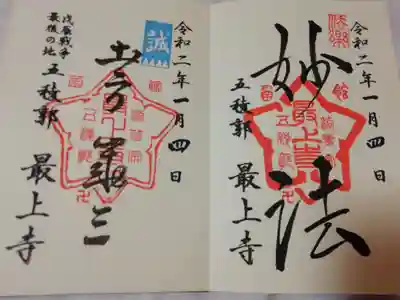 令和二年一月四日
妙法
五稜郭
最上寺
令和二年一月四日
誠
土方歳三
戊辰戦争
最後の地
五稜郭
最上寺